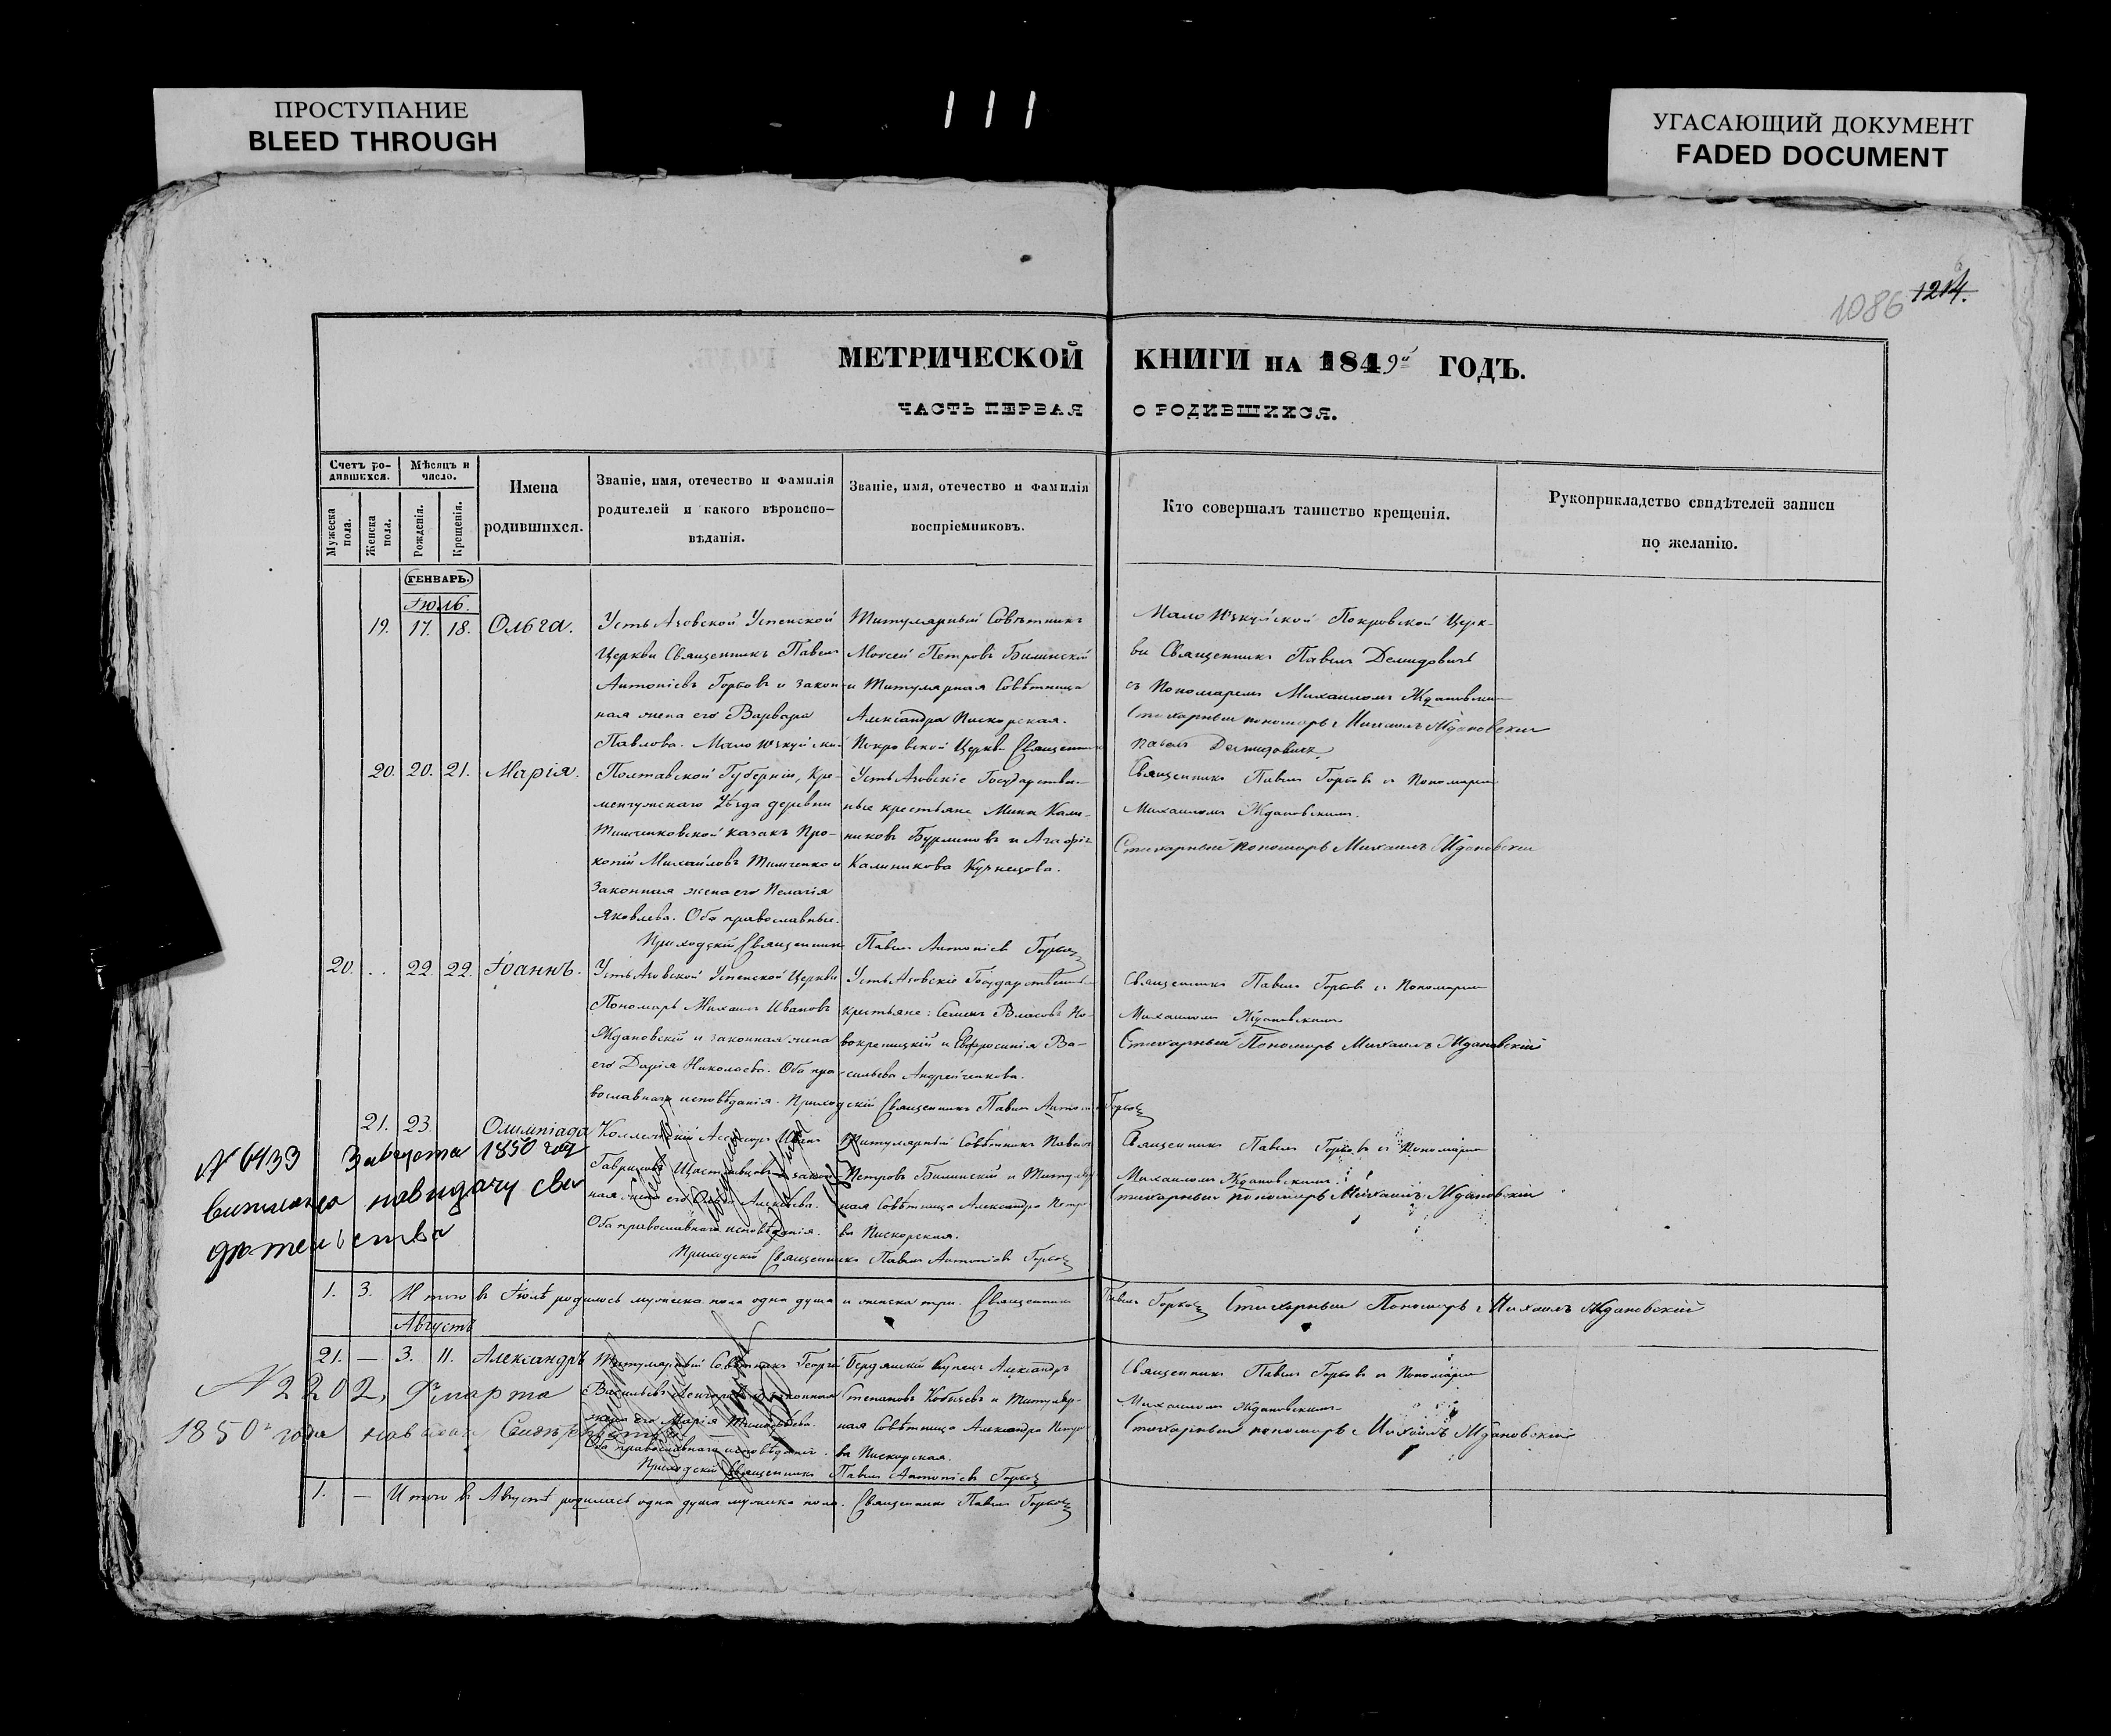 ПРОСТУПАНИЕ
BLEED THROUGH
111
УГАСАЮЩИЙ ДОКУМЕНТ
FADED DOCUMENT
1086 1214.
МЕТРИЧЕСКОЙ КНИГИ НА 1849й ГОДЪ.
ЧАСТЬ ПЕРВАЯ О РОДИВШИХСЯ.
Счетъ ро-
дившихся.
Мужеска пола.
Женска пола.
Мѣсяцъ и
число.
Рожденія.
Крещенія.
Имена
родившихся.
Званіе, имя, отечество и фамилія
родителей и какого вѣроиспо-
вѣданія.
Званіе, имя, отечество и фамилія
воспріемниковъ.
Кто совершалъ таинство крещенія.
Рукоприкладство свидѣтелей записи
по желанію.
ГЕНВАРЬ.
Іюль.
19. 17. 18. Ольга.
Усть Азовской Успенской
Церкви Священникъ Павелъ
Антоніевъ Горбовъ и закон-
ная жена его Варвара
Павлова.
Титулярный Совѣтникъ
Моѵсей Петровъ Билинскій
и Титулярная Совѣтница
Александра Пискорская.
Покровской Церкви Священникъ
Павелъ Демидовичъ
Покровской Церк-
ви Священникъ Павелъ Демидовичъ
съ Пономаремъ Михаиломъ Ждановскимъ
Стихарный пономарь Михаилъ Ждановскій
20. 20. 21. Марія.
Полтавской Губерніи, Кре-
менчужскаго Уѣзда деревни
Тимченковской казакъ Про-
копій Михайловъ Тимченко и
законная жена его Пелагія
Яковлева. Оба православные.
Усть Азовскіе Государствен-
ные крестьяне Мина Кали-
никовъ Бурлиновъ и Агафія
Калиникова Кузнецова.
Священникъ Павелъ Горбовъ съ Пономаремъ
Михаиломъ Ждановскимъ.
Стихарный пономарь Михаилъ Ждановскій
Приходскій Священникъ Павелъ Антоніевъ Горбовъ
20. .. 22. 22. Іоаннъ.
Усть Азовской Успенской Церкви
Пономарь Михаилъ Ивановъ
Ждановскій и законная жена
его Дарія Николаева. Оба пра-
вославнаго исповѣданія. Приходскій Священникъ Павелъ Антоніевъ Горбовъ
Усть Азовскіе Государственные
крестьяне: Семенъ Власовъ Но-
вокрещицкій и Евфросинія Ва-
сильева Андрейченкова.
Священникъ Павелъ Горбовъ съ Пономаремъ
Михаиломъ Ждановскимъ
Стихарный Пономарь Михаилъ Ждановскій
21. 23. Олимпіада
Коллежскій Ассесоръ
Гавриловъ
ная жена его Алексѣева.
Оба православнаго исповѣданія.
Титулярный Совѣтникъ Павелъ
Петровъ Билинскій и Титуляр-
ная Совѣтница Александра Петро-
ва Пискорская.
Священникъ Павелъ Горбовъ съ Пономаремъ
Михаиломъ Ждановскимъ.
Стихарный пономарь Михаилъ Ждановскій
Приходскій Священникъ Павелъ Антоніевъ Горбовъ
№ 6433 3 августа 1850 год
выдачу сви
дѣтельства
1. 3. Итого въ Іюлѣ родилось мужска пола одна душа и женска три. Священникъ Павелъ Горбовъ Стихарный Пономарь Михаилъ Ждановскій
Августъ
21. — 3. 11. Александръ
Титулярный Совѣтникъ Георгій
Васильевъ и законная
жена его Марія Тимофѣева.
Оба православнаго исповѣданія.
Бердянскій Купецъ Александръ
Степановъ Кобызевъ и Титуляр-
ная Совѣтница Александра Петро-
ва Пискорская.
Священникъ Павелъ Горбовъ съ Пономаремъ
Михаиломъ Ждановскимъ
Стихарный пономарь Михаилъ Ждановскій
Приходскій Священникъ Павелъ Антоніевъ Горбовъ
№ 2202, 9 марта
1850 года
1. — Итого въ Августѣ родилась одна душа мужска пола. Священникъ Павелъ Горбовъ